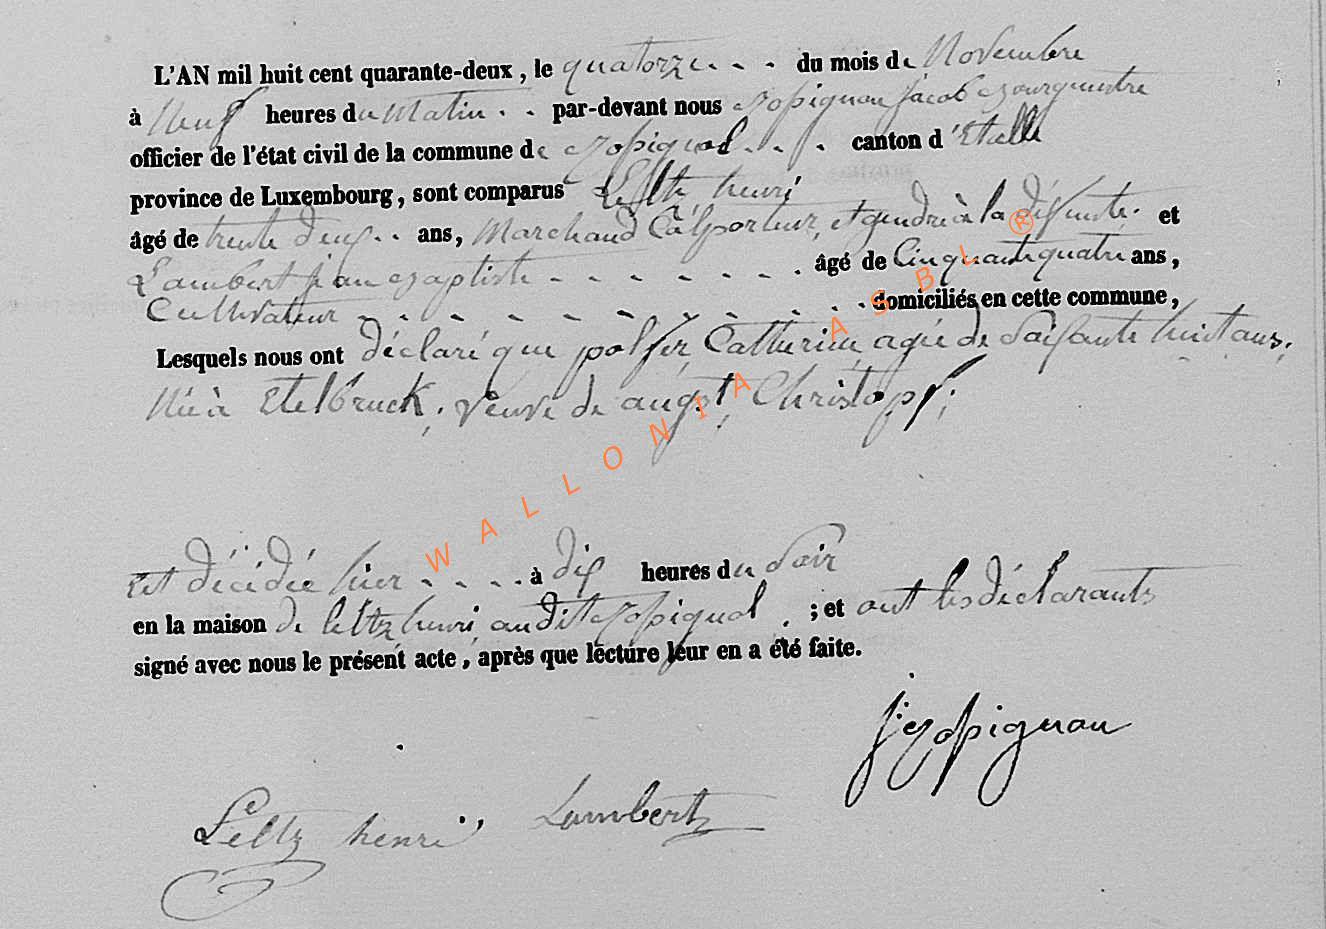 L'AN mil huit cent quarante-deux, le quatorze - - du mois de Novembre
à Neuf heures du Matin - - par-devant nous Jacob Bourguestre
officier de l'état civil de la commune de - - canton d'Etalle
province de Luxembourg, sont comparus Leltz, henri
âgé de trente deux - - ans, Marchand Colporteur, et gendre à la défunte. et
Lambert jean baptiste - - - - - - - - âgé de Cinquante quatre ans,
Cultivateur - - - - - - - - - - domiciliés en cette commune,
Lesquels nous ont déclaré que Catherine agée de Soixante huit ans,
Née à Etelbruck, veuve de angst, Christoph;
Est décédée hier - - - - à dix heures du Soir
en la maison de leltz, henri, audit ; et ont les déclarants
signé avec nous le présent acte, après que lecture leur en a été faite.
Leltz henri
Lambert
WALLONIA ASBL ®